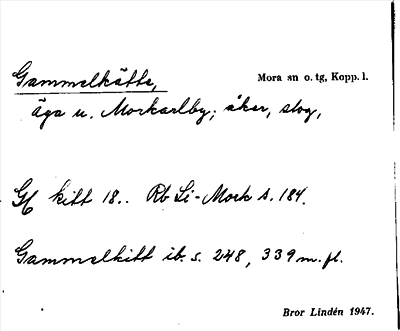 Gammelkätte, Mora sn o. tg, Kopp. l.
äga u. Morkarlby; åker, slog,
Gl kitt 18.. Rb Li-Mork s. 184.
Gammelkitt ib. s. 248, 339 m. fl.
Bror Lindén 1947.